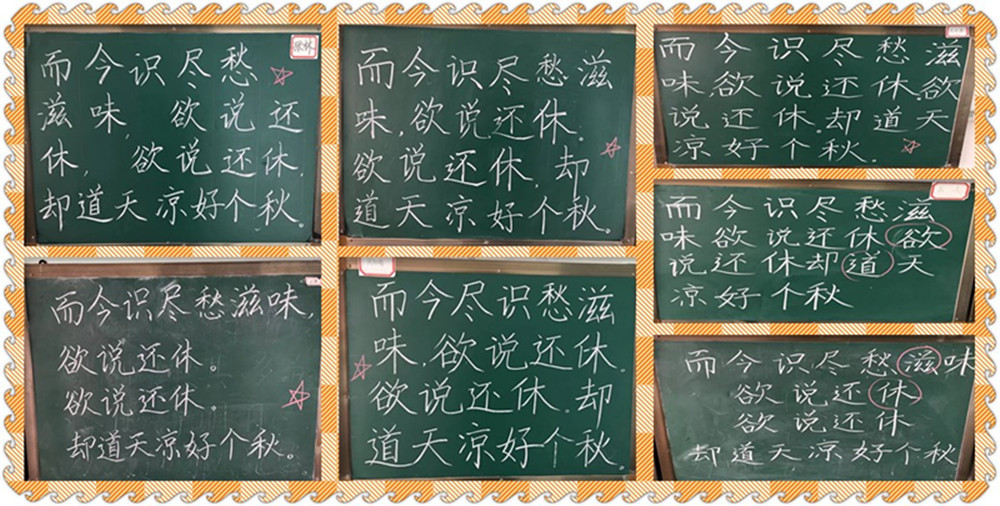 而今识尽愁
滋味,欲说还
休,欲说还休,
却道天凉好个秋。
而今识尽愁滋
味,欲说还休。
欲说还休,却
道天凉好个秋。
而今识尽愁滋
味,欲说还休,欲
说还休。却道天
凉好个秋。
而今识尽愁滋
味欲说还休欲
说还休却道天
凉好个秋
而今识尽愁滋味,
欲说还休。
欲说还休。
却道天凉好个秋。
而今尽识愁滋
味,欲说还休。
欲说还休。却
道天凉好个秋。
而今识尽愁滋味
欲说还休
欲说还休
却道天凉好个秋